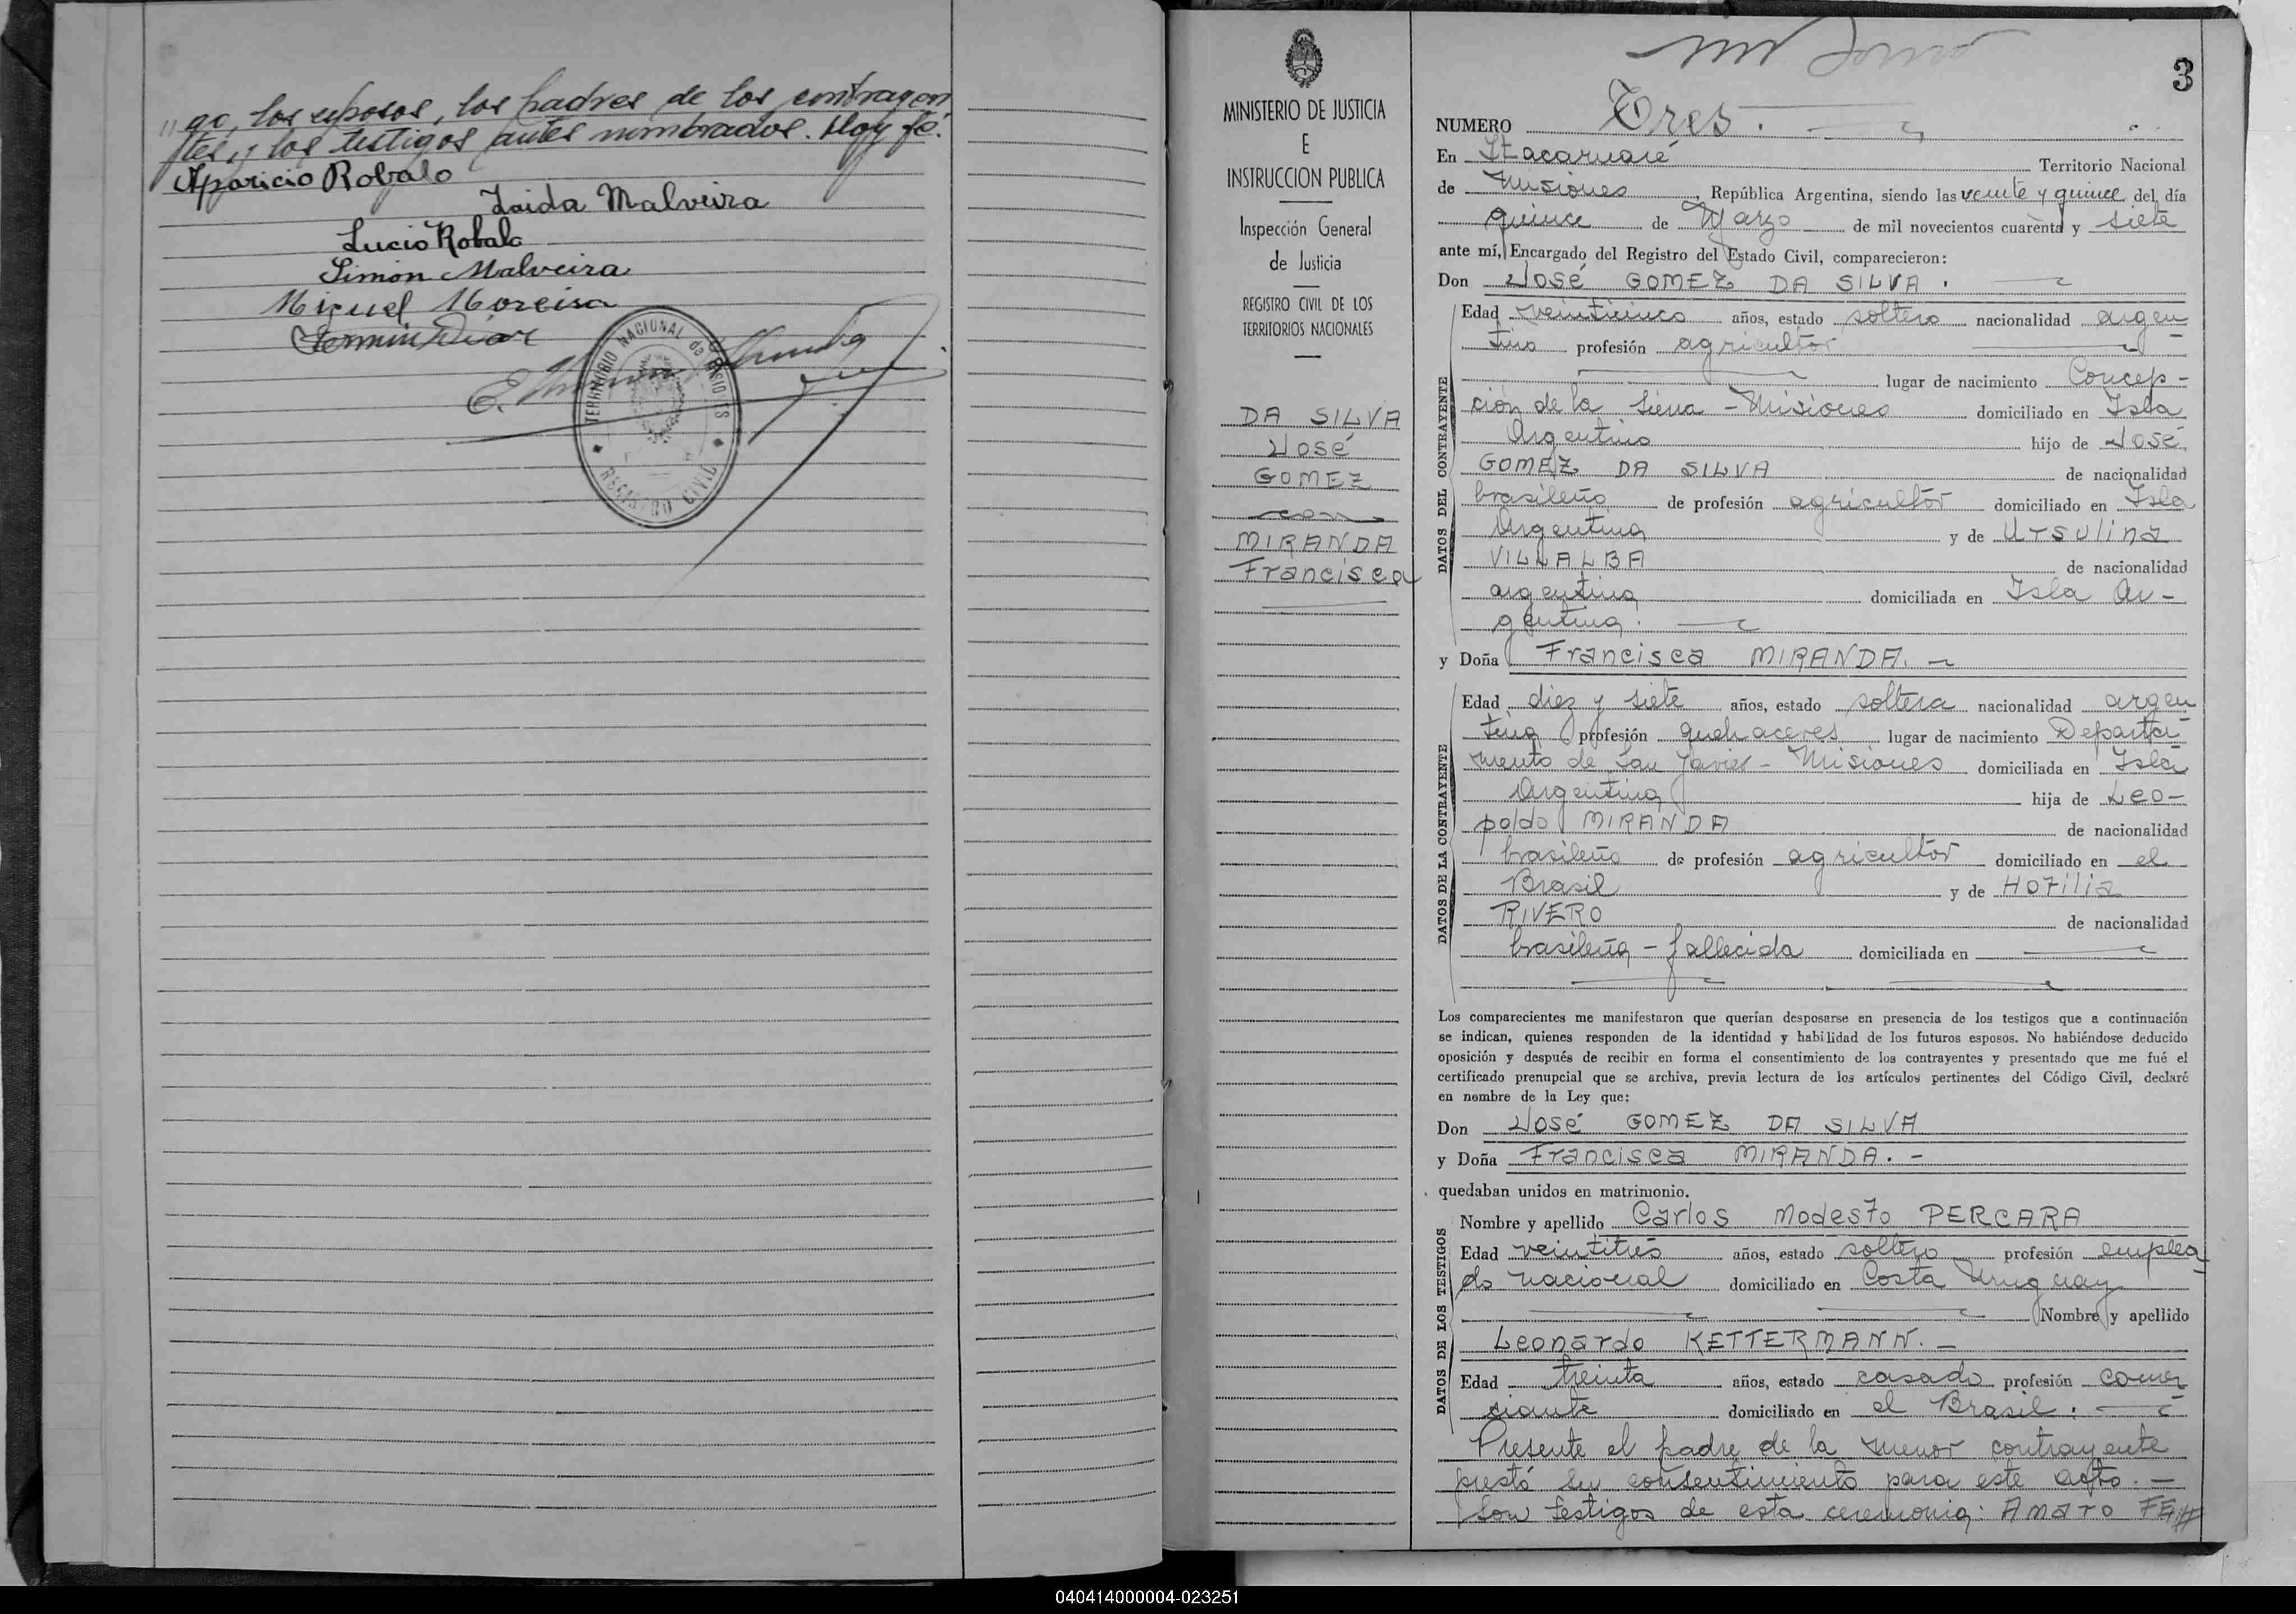 "go, los esposos, los padres de los contrayen
tes y los testigos antes nombrados. Doy fé.
Aparicio Robalo
Zaida Malveira
Lucio Robalo
Simón Malveira
Miguel Moreira
Fermin Diaz
TERRITORIO NACIONAL de MISIONES
REGISTRO CIVIL
MINISTERIO DE JUSTICIA
E
INSTRUCCION PUBLICA
Inspección General
de Justicia
REGISTRO CIVIL DE LOS
TERRITORIOS NACIONALES
DA SILVA
José
GOMEZ
con
MIRANDA
Francisca
3
NUMERO Tres.
En Itacaruaré Territorio Nacional
de Misiones, República Argentina, siendo las veinte y quince del día
quince de Marzo de mil novecientos cuarenta y siete
ante mí, Encargado del Registro del Estado Civil, comparecieron:
Don José GOMEZ DA SILVA.
DATOS DEL CONTRAYENTE
Edad veinticinco años, estado soltero nacionalidad argen
tino profesión agricultor
lugar de nacimiento Concep-
ción de la Sierra - Misiones domiciliado en Isla
Argentina hijo de José
GOMEZ DA SILVA de nacionalidad
brasileño de profesión agricultor domiciliado en Isla
Argentina y de Ursulina
VILLALBA de nacionalidad
argentina domiciliada en Isla Ar-
gentina.
y Doña Francisca MIRANDA. -
DATOS DE LA CONTRAYENTE
Edad diez y siete años, estado soltera nacionalidad argen
tina profesión quehaceres lugar de nacimiento Departa
mento de San Javier - Misiones domiciliada en Isla
Argentina hija de Leo-
poldo MIRANDA de nacionalidad
brasileño de profesión agricultor domiciliado en el
Brasil y de Hotilia
RIVERO de nacionalidad
brasileña - fallecida domiciliada en
Los comparecientes me manifestaron que querían desposarse en presencia de los testigos que a continuación
se indican, quienes responden de la identidad y habilidad de los futuros esposos. No habiéndose deducido
oposición y después de recibir en forma el consentimiento de los contrayentes y presentado que me fué el
certificado prenupcial que se archiva, previa lectura de los artículos pertinentes del Código Civil, declaré
en nombre de la Ley que:
Don José GOMEZ DA SILVA
y Doña Francisca MIRANDA. -
quedaban unidos en matrimonio.
DATOS DE LOS TESTIGOS
Nombre y apellido Carlos Modesto PERCARA
Edad veintitrés años, estado soltero profesión emplea
do nacional domiciliado en Costa Uruguay
Nombre y apellido
Leonardo KETTERMANN. -
Edad treinta años, estado casado profesión comer
ciante domiciliado en el Brasil.
Presente el padre de la menor contrayente
prestó su consentimiento para este acto. -
Son testigos de esta ceremonia: Amaro
040414000004-023251